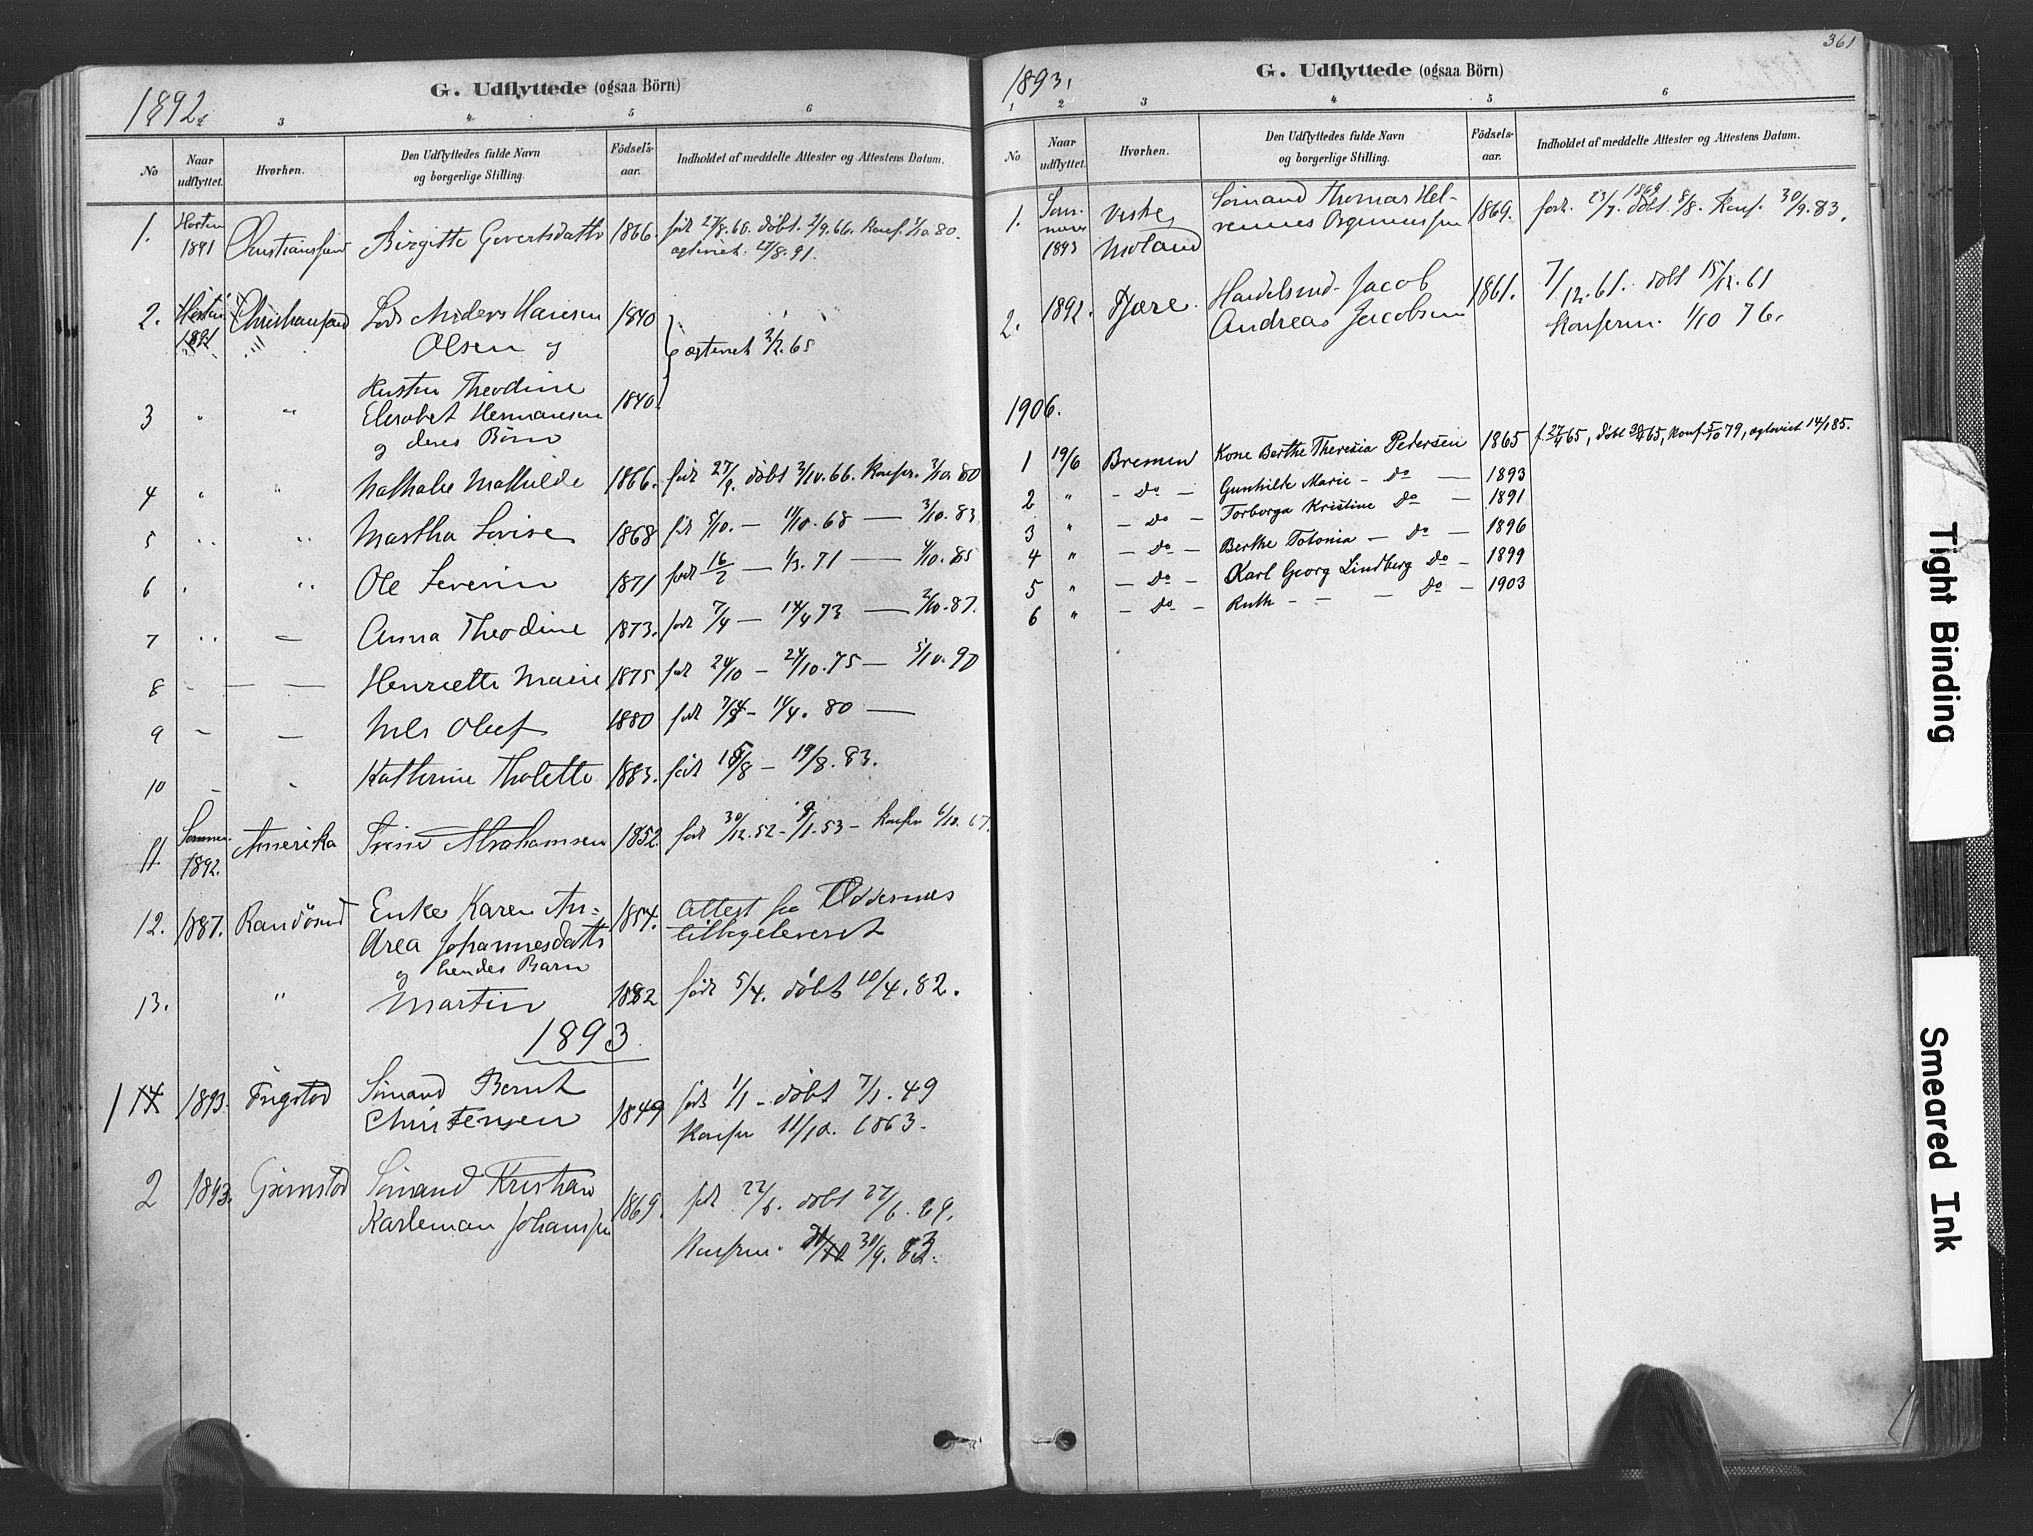 1892
G. Udflyttede (ogsaa Börn)
3 4 5 6
No
Naar udflyttet.
Hvorhen.
Den Udflyttedes fulde Navn
og borgerlige Stilling.
Födsels-
aar.
Indholdet af meddelte Attester og Attestens Datum.
1. Høsten 1891 Christianssand Birgitte Govertsdatter 1866. født 27/8.66. døbt. 2/9.66. Konf. 3/10.80.
ægteviet. 27/8.91.
2. Høsten 1891 Christiansand Lods Anders Hansen 1840
Olsen og
ægteviet 2/2.65
3 " " Hustru Theodine 1840.
Elisabet Hermansen
og deres Børn
4 " " Nathalie Mathilde 1866. født 27/9. døbt 3/10.66. Konfir. 3/10.80
5 " " Martha Lovise 1868 født 5/10. — 11/10.68 — 3/10.83
6 " " Ole Severin 1871 født 16/2 — 1/3.71 — 4/10.85
7 " — Anna Theodine 1873. født 7/4 — 14/4 73 — 2/10.87.
8 - — — Henriette Marie 1875 født 24/10 — 24/10.75 — 5/10.90
9 - — Nils Oluf 1880 født 7/4 - 11/4. 80 —
10 - " Katherine Tholette 1883. født 15/8 — 19/8.83.
11. Sommer 1892. Amerika Trine Abrahamsen 1852. født 30/12.52 - 9/1.53 - Konfir 6/10.67.
12. 1887. Randösund Enke Karen An- 1854. Attest fra Oddernes
drea Johannesdatter tilbageleveret
og hendes Barn
13. " Martin 1882 født 5/4. døbt 10/4.82.
1893
1 14 1893. Sömand Bernt 1849 født 1/1 - døbt 7/1.49
Christensen Konfir 11/10. 1863.
2 1893. Grimstad Sömand Kristian 1869. født 22/6. døbt 27/6.69.
Karleman Johanssen
Konfirm. 30/9.83.
361
1893.
G. Udflyttede (ogsaa Börn)
1 2 3 4 5 6
No
Naar udflyttet.
Hvorhen.
Den Udflyttedes fulde Navn
og borgerlige Stilling.
Födsels-
aar.
Indholdet af meddelte Attester og Attestens Datum.
1. Som- Sömand Thomas Hel- 1869. født. 23/7. 1869 døbt. 8/8. Konf. 30/9.83.
1893 Moland
2. 1892. Fjære. Handelsmd. Jacob 1861. 7/12.61. døbt 15/12.61
Andreas Jacobsen Konfirm. 1/10 76.
1906.
1 19/6 Bremen Kone Berthe Theresia Pedersen 1865 f. 27/4 65, døbt 30/4 65, konf. 5/10 79, ægteviet 14/1 85.
2 " - do - Gunhilde Marie - do — 1893
3 " - do - Torborga Kristine do — 1891
4 " - do - Berthe Totonia — do — 1896
5 " - do - Karl Georg Lindberg do - 1899
6 " - do - Ruth - - - do - 1903
Tight Binding
Smeared Ink